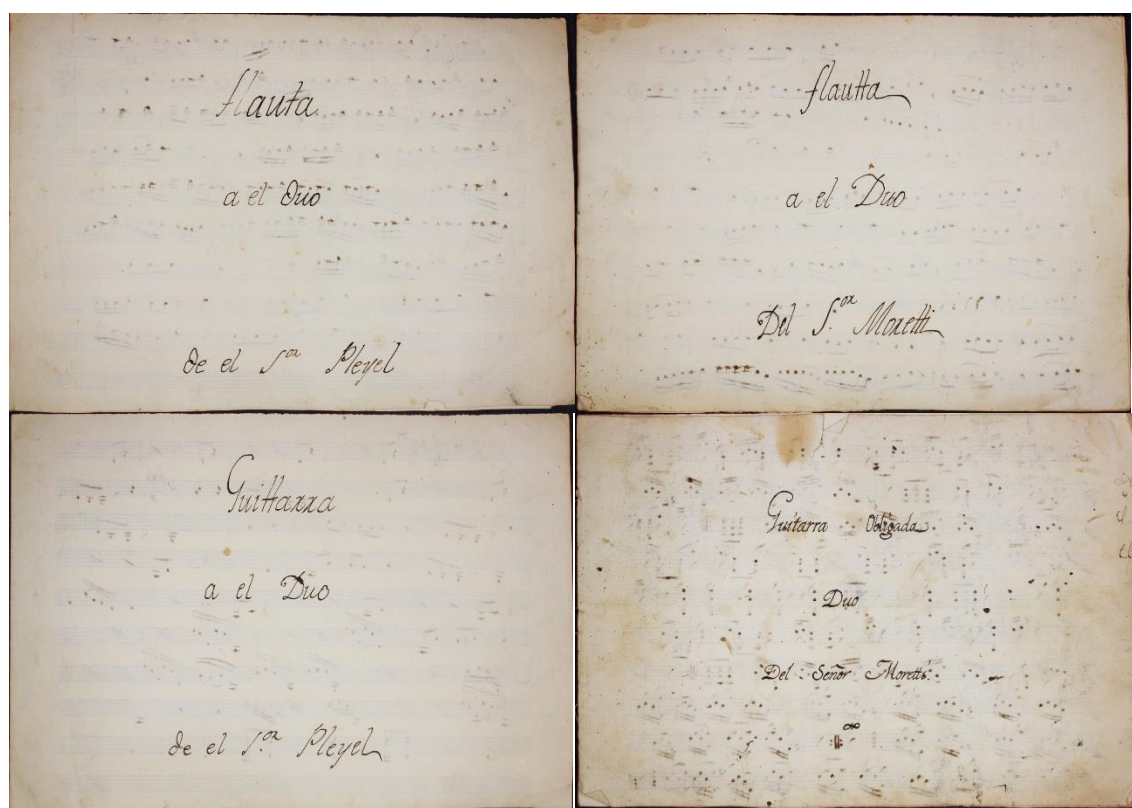 flauta
a el duo
de el S.or Pleyel
flautta
a el Duo
Del S.or Moretti
Guittarra
a el Duo
de el S.or Pleyel
Guitarra Obligada
Duo
Del Señor Moretti